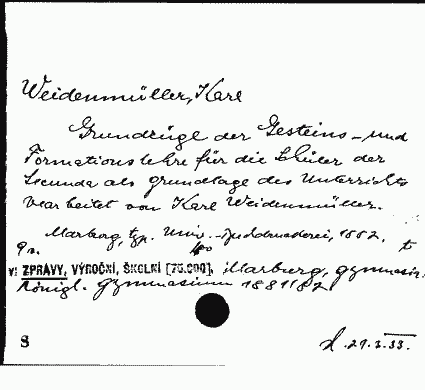 Weidenmüller, Karl
Grundzüge der Gesteins- und
Formationslehre für die Schüler der
Secunda als grundlage des Unterrichts
bearbeitet von Karl Weidenmüller.
Marburg, typ. Univ.-Buchdruckerei, 1882. 4
9 s.
v: ZPRÁVY, VÝROČNÍ, ŠKOLNÍ [75.000], Marburg, gymnasium.
Königl. gymnasium 1881/82
8
29.3.33.